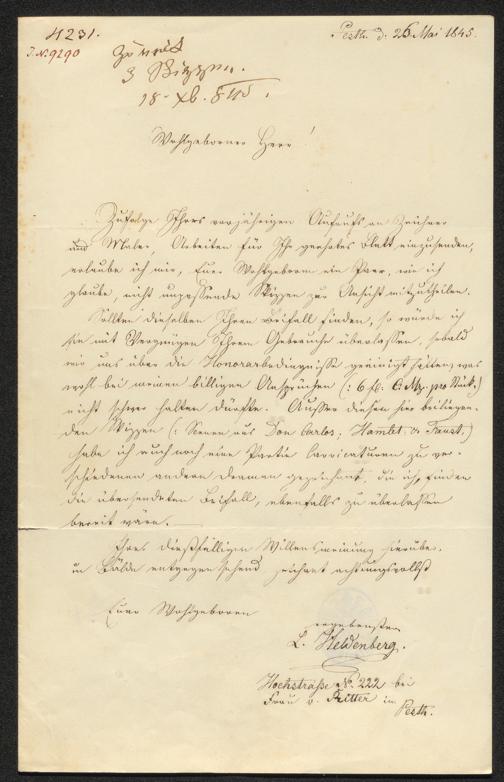 4231.
J.N. 9290
Pesth d: 26 Mai 1845.
zurück
3 Skizzen.
18 – Xb. 845.
Wohlgeborner Herr!
Zufolge Ihres vorjährigen Aufrufs an Zeichner
und Maler, Arbeiten für Ihr geehrtes Blatt einzusenden,
erlaube ich mir, Euer Wohlgeborn ein Paar, wie ich
glaube, nicht unpassende Skizzen zur Ansicht mitzutheilen.
Sollten dieselben Ihren Beifall finden, so würde ich
sie mit Vergnügen Ihrem Gebrauche überlassen, sobald
wir uns über die Honorarbedingnisse geeinigt hätten, was
wohl bei meinen billigen Ansprüchen (: 6 fl. C. Mz. pro Stück :)
nicht schwer halten dürfte. Ausser diesen hier beiliegen-
den Skizzen (: Scenen aus Don Carlos; Hamlet & Faust.)
habe ich auch noch eine Partie Carricaturen zu ver-
schiedenen andern Dramen gezeichnet, die ich, finden
die übersendeten Beifall, ebenfalls zu überlassen
bereit wäre.
Ihres dießfälligen Willensmeinung hierüber
in Bälde entgegensehend zeichnet achtungsvollst
Euer Wohlgeboren
ergebenster
L. Heldenberg.
Hochstraße No. 222 bei
Frau v. Ritter in
Pesth.